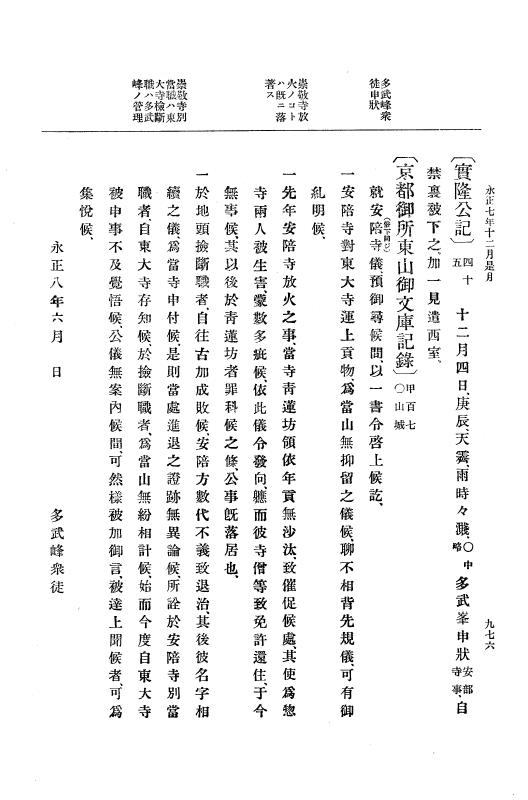 永正七年十二月是月
九七六
〔實隆公記〕五四十 十二月四日、庚辰、天霽、雨時々濺、○中略 多武峯申狀安部寺事自
禁裏被下之、加一見遣西室、
〔京都御所東山御文庫記錄〕甲百七○山城
就安陪寺(倍下同ジ)儀、預御尋候間、以一書令啓上候訖、
一安陪寺對東大寺運上貢物、爲當山無抑留之儀候、聊不相背先規儀、可有御
糺明候、
一先年安陪寺放火之事、當寺靑蓮坊領依年貢無沙汰、致催促候處、其使爲惣
寺兩人被生害、蒙數多疵候、依此儀令發向、軈而彼寺僧等致免許還住、于今
無事候、其以後於靑蓮坊者罪科候之條、公事既落居也、
一於地頭撿斷職者、自往古加成敗候、安陪方數代不義致退治、其後彼名字相
續之儀、爲當寺申付候、是則當處進退之證跡無異論候、所詮於安陪寺別當
職者、自東大寺存知候、於撿斷職者、爲當山無紛相計候、始而今度自東大寺
被申事不及覺悟候、公儀無案內候間、可然樣被加御言、被達上聞候者、可爲
集悅候、
永正八年六月 日
多武峰衆徒
多武峰衆
徒申狀
崇敬寺放
火ノコト
ハ既ニ落
著ス
崇敬寺別
當職ハ東
大寺檢斷
職ハ多武
峰ノ管理